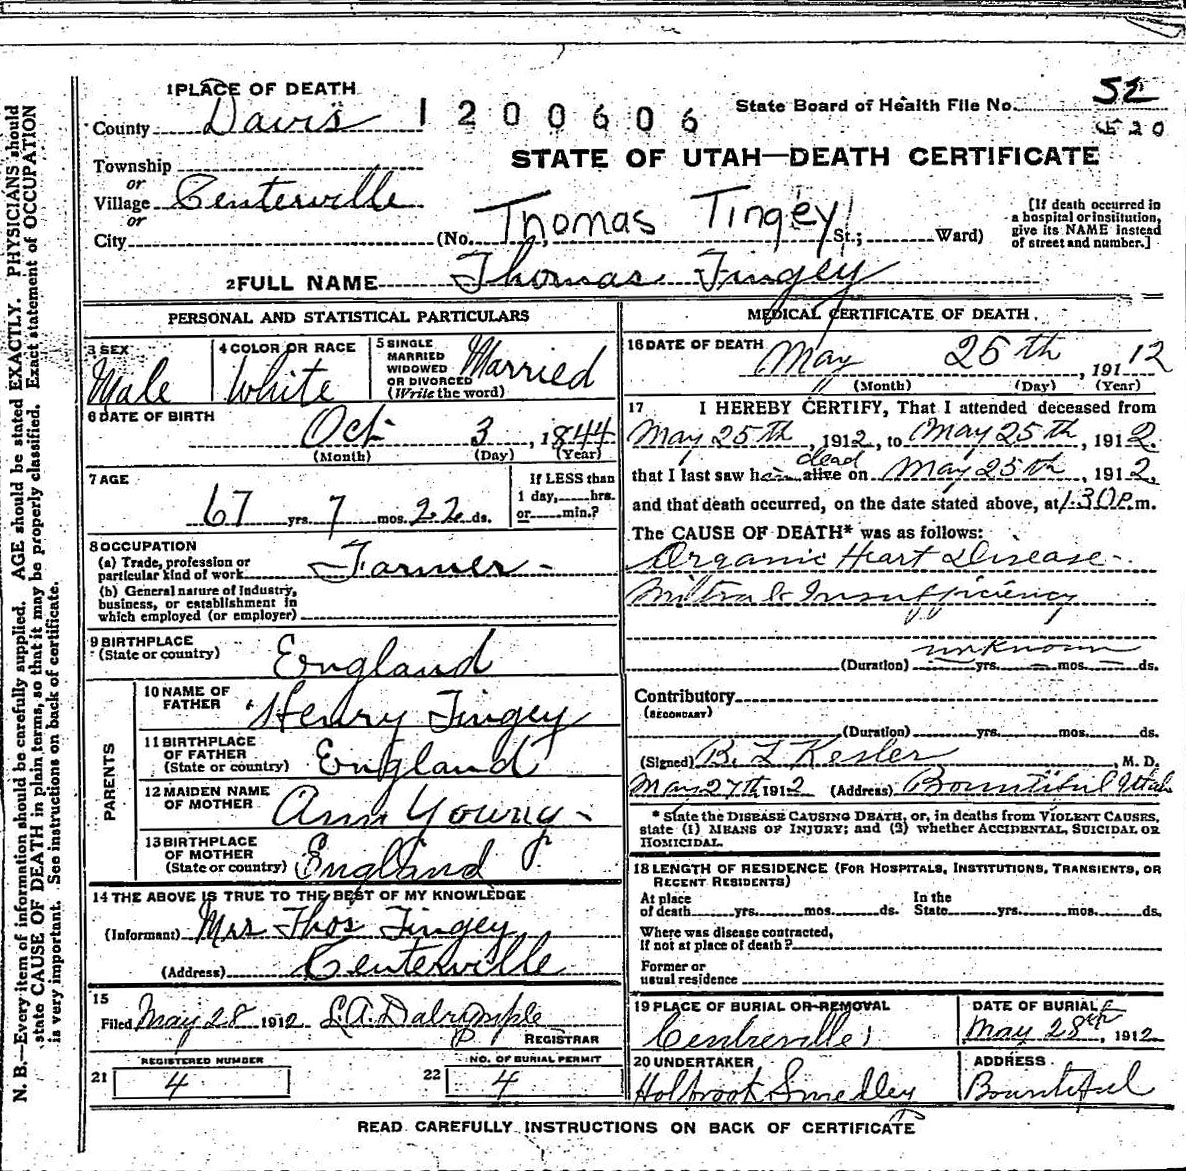 N. B.—Every item of information should be carefully supplied. AGE should be stated EXACTLY. PHYSICIANS should
state CAUSE OF DEATH in plain terms, so that it may be properly classified. Exact statement of OCCUPATION
is very important. See instructions on back of certificate.
1 PLACE OF DEATH
County Davis
1200606
State Board of Health File No. 52
Township
or
Village Centerville
or
City
STATE OF UTAH—DEATH CERTIFICATE
Thomas Tingey
(No. St.; Ward)
[If death occurred in
a hospital or institution,
give its NAME instead
of street and number.]
2 FULL NAME Thomas Tingey
PERSONAL AND STATISTICAL PARTICULARS
3 SEX
Male
4 COLOR OR RACE
White
5 SINGLE
MARRIED
WIDOWED
OR DIVORCED
(Write the word)
Married
6 DATE OF BIRTH
Oct 3, 1844
(Month) (Day) (Year)
7 AGE
67 yrs. 7 mos. 22 ds.
If LESS than
1 day, hrs.
or min.?
8 OCCUPATION
(a) Trade, profession or
particular kind of work Farmer -
(b) General nature of industry,
business, or establishment in
which employed (or employer)
9 BIRTHPLACE
(State or country) England
PARENTS
10 NAME OF
FATHER Henry Tingey
11 BIRTHPLACE
OF FATHER
(State or country) England
12 MAIDEN NAME
OF MOTHER Ann Young -
13 BIRTHPLACE
OF MOTHER
(State or country) England
14 THE ABOVE IS TRUE TO THE BEST OF MY KNOWLEDGE
(Informant) Mrs Thos Tingey
(Address) Centerville
15
Filed May 28 1912 L.A. Dalrymple
REGISTRAR
REGISTERED NUMBER
21 4
NO. OF BURIAL PERMIT
22 4
MEDICAL CERTIFICATE OF DEATH
16 DATE OF DEATH
May 25th, 1912
(Month) (Day) (Year)
17 I HEREBY CERTIFY, That I attended deceased from
May 25th, 1912, to May 25th, 1912.
dead
that I last saw him alive on May 25th, 1912,
and that death occurred, on the date stated above, at 1.30 P.m.
The CAUSE OF DEATH* was as follows:
Organic Heart Disease -
Mitral Insufficiency
unknown
(Duration) yrs. — mos. — ds.
Contributory
(SECONDARY)
(Duration) yrs. mos. ds.
(Signed) B. L Kesler, M. D.
May 27th 1912 (Address) Bountiful Utah
* State the DISEASE CAUSING DEATH, or, in deaths from VIOLENT CAUSES,
state (1) MEANS OF INJURY; and (2) whether ACCIDENTAL, SUICIDAL OR
HOMICIDAL.
18 LENGTH OF RESIDENCE (FOR HOSPITALS, INSTITUTIONS, TRANSIENTS, OR
RECENT RESIDENTS)
At place
of death yrs. mos. ds.
In the
State yrs. mos. ds.
Where was disease contracted,
if not at place of death?
Former or
usual residence
19 PLACE OF BURIAL OR REMOVAL
Centreville
DATE OF BURIAL
May 28th, 1912
20 UNDERTAKER
Holbrook Smedley
ADDRESS
Bountiful
READ CAREFULLY INSTRUCTIONS ON BACK OF CERTIFICATE